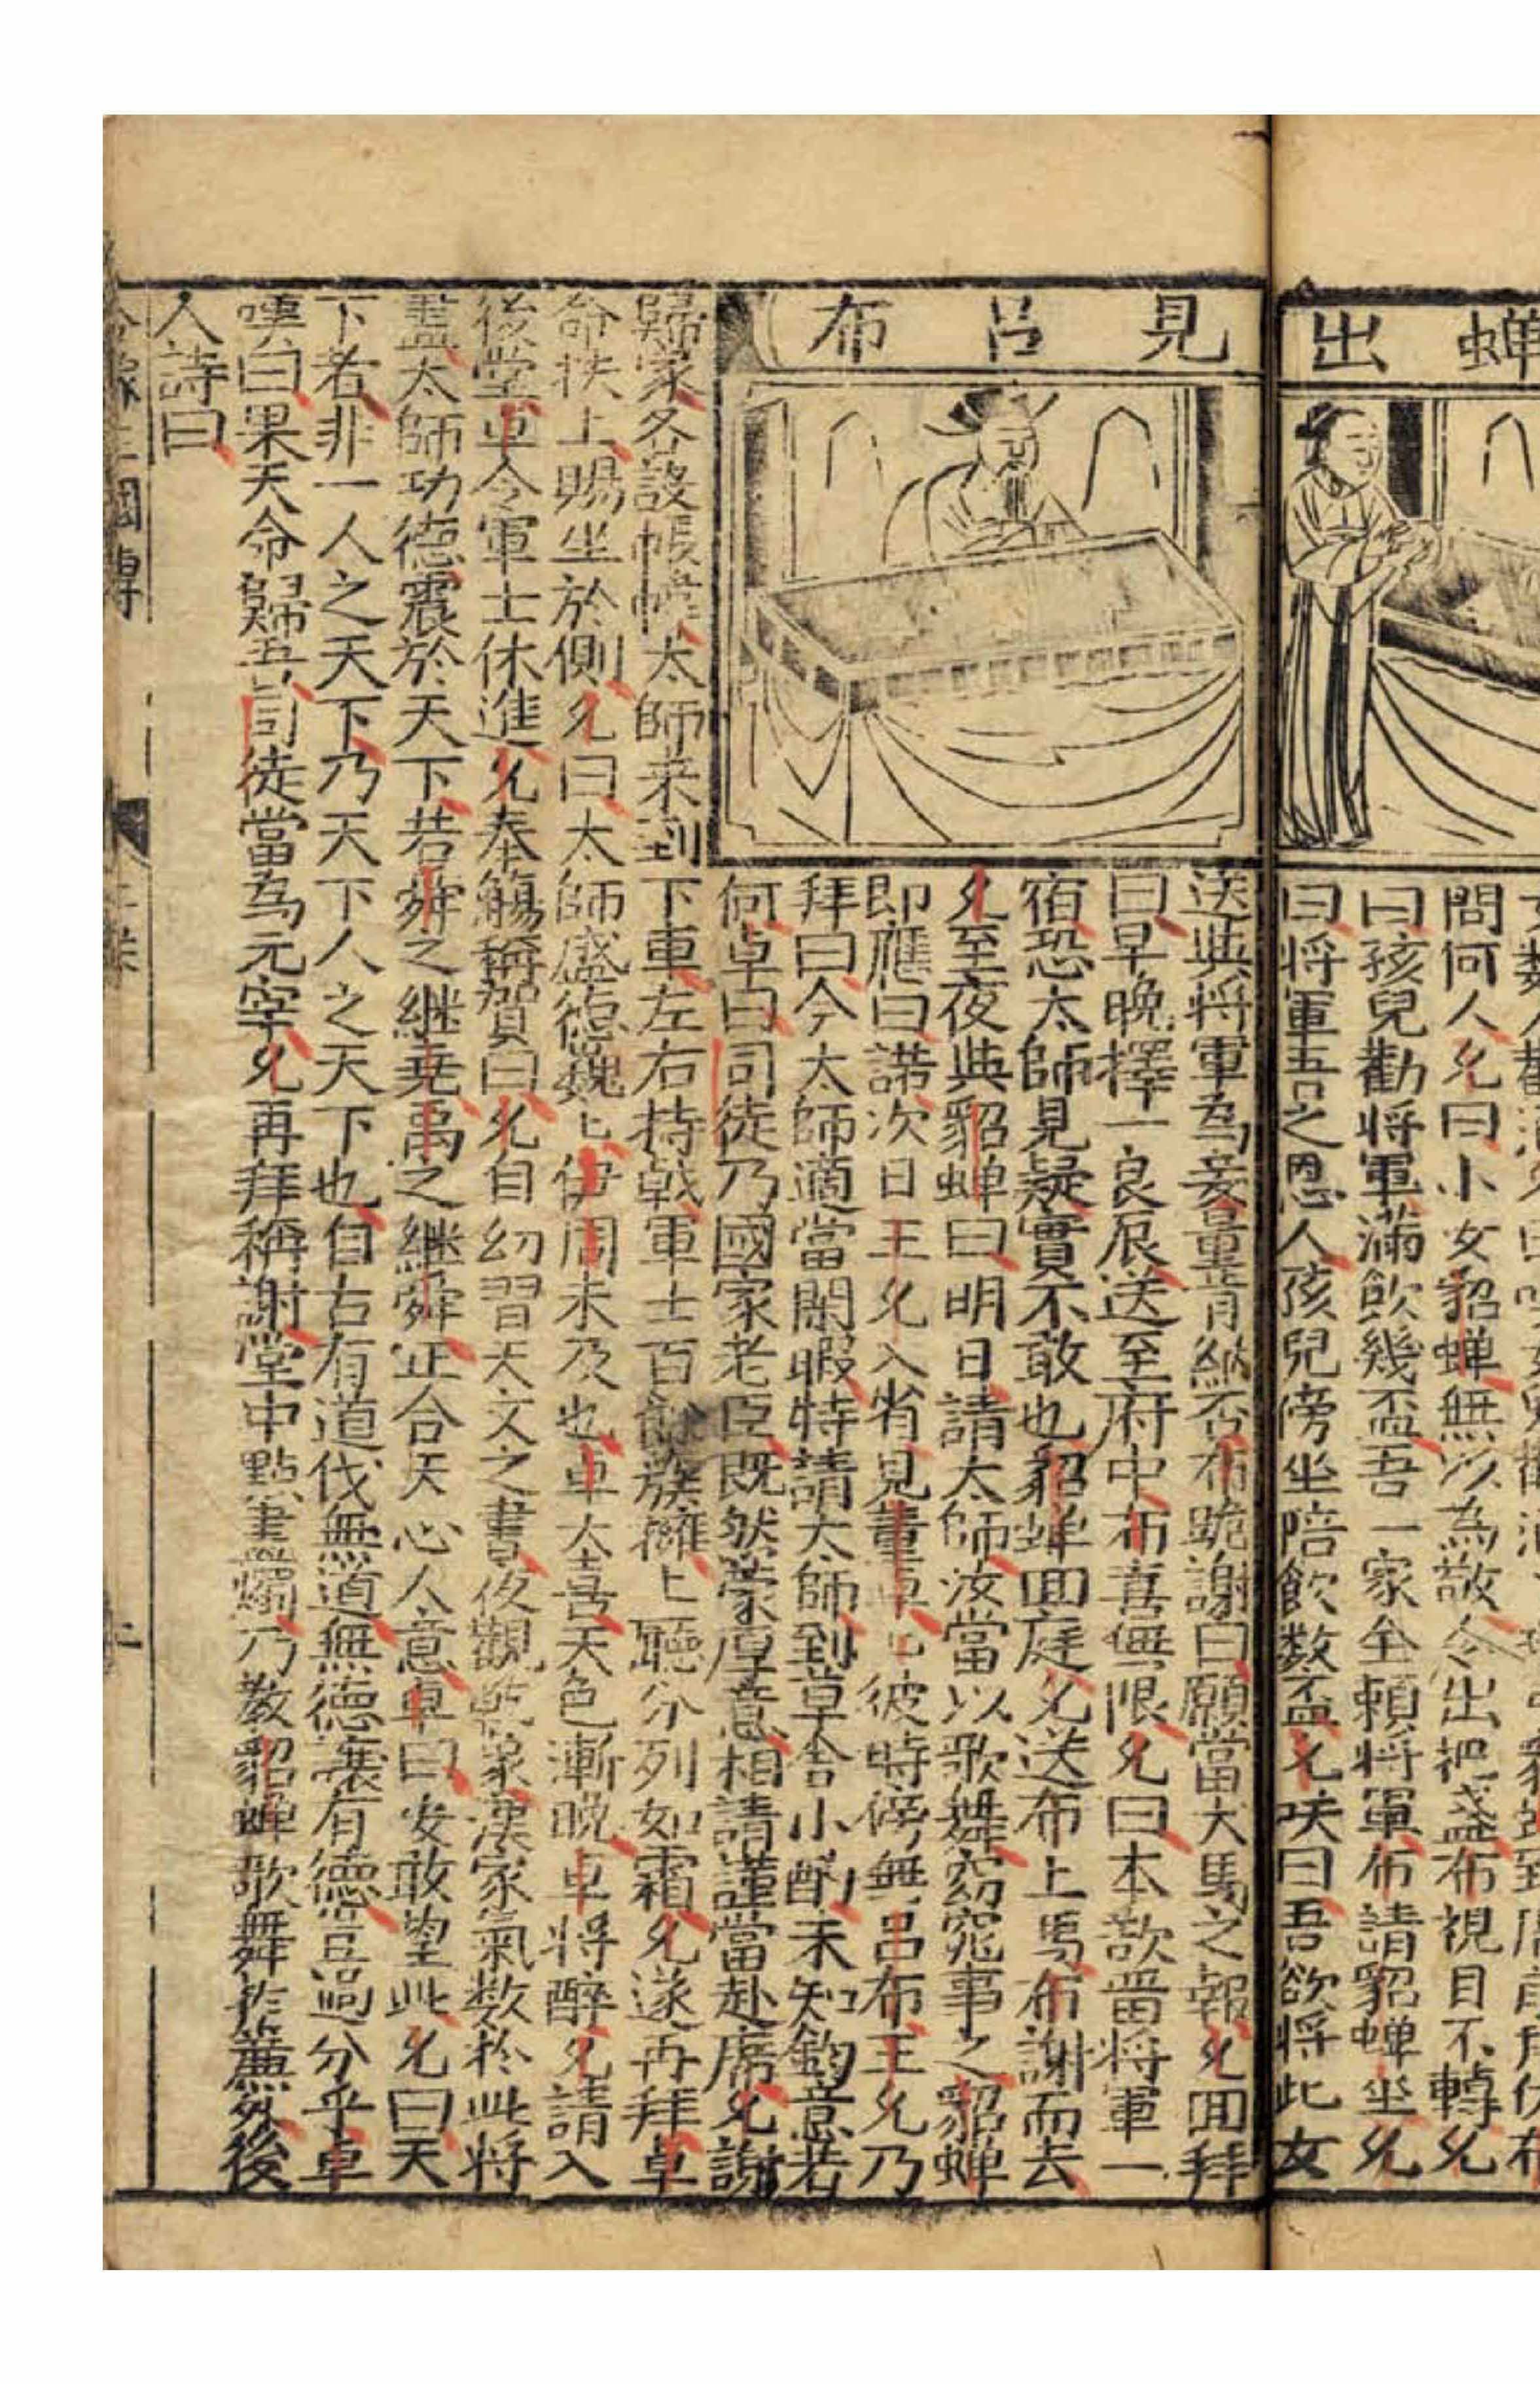 蟬出
見吕布
問何人允曰小女貂蟬無以為敬令出把盞布視目不轉允
曰孩兒勸將軍滿飲幾盃吾一家全賴將軍布請貂蟬坐允
曰将軍吾之恩人孩兒傍坐陪飲数盃允咲曰吾欲将此女
送與将軍為妾還肯納否布跪謝曰願當犬馬之報允囬拜
曰早晚擇一良辰送至府中布喜無限允曰本欲畱将軍一
宿恐太師見疑實不敢也貂蟬囬庭允送布上馬布謝而去
允至夜與貂蟬曰明日請太師汝當以歌舞窈窕事之貂蟬
即應曰諾次日王允入省見董卓卓彼時傍無吕布王允乃
拜曰今太師適當閑暇特請太師到草舍小酌未知鈞意若
何卓曰司徒乃國家老臣既然蒙厚意相請謹當赴席允謝
歸家各設帳幃太師来到下車左右持戟軍士百餘簇擁上聽分列如霜允遂再拜卓
命扶上賜坐於側允曰太師盛德巍上伊周未及也卓大喜天色漸晚卓將醉允請入
後堂卓令軍士休進允奉觴稱賀曰允自幼習天文之書夜觀乾象漢家氣数於此將
盡太師功德震於天下若舜之継堯禹之継舜正合天心人意卓曰安敢望此允曰天
下者非一人之天下乃天下人之天下也自古有道伐無道無德讓有德豈過分乎卓
嘆曰果天命歸吾司徒當為元宰允再拜稱謝堂中點畫燭乃教貂蟬歌舞於簾外後
人詩曰
三國傳